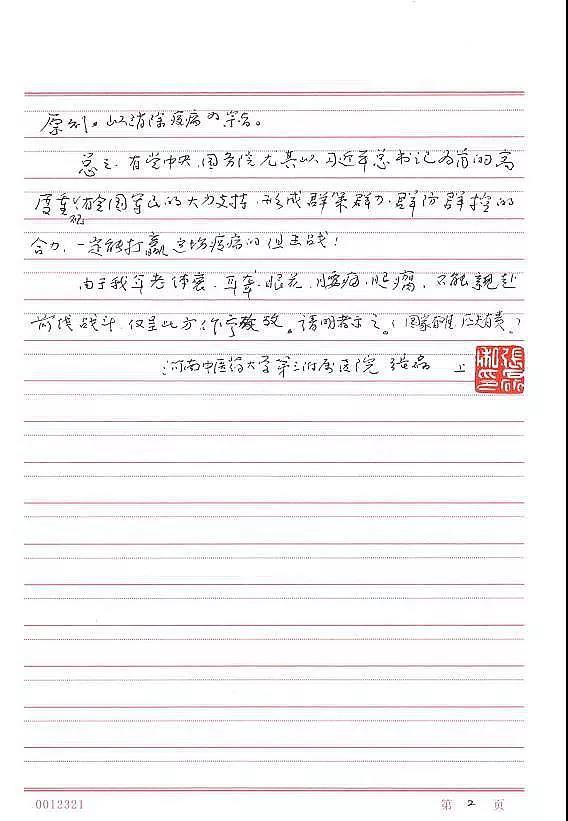 原则。以消除疫病为宗旨。
总之，有党中央、国务院尤其以习近平总书记为首的高
度重视全国军民的大力支持，形成群策群力，群防群控的
合力，一定能打赢这场疫病的阻击战！
由于我年老体衰，耳聋、眼花、腰痛、腿，不能亲赴
前线战斗，仅呈此方作。请明者示之。（国家，匹夫有责。）
河南中医药大学第三附属医院 张磊 上
張磊私印
0012321
第 2 页